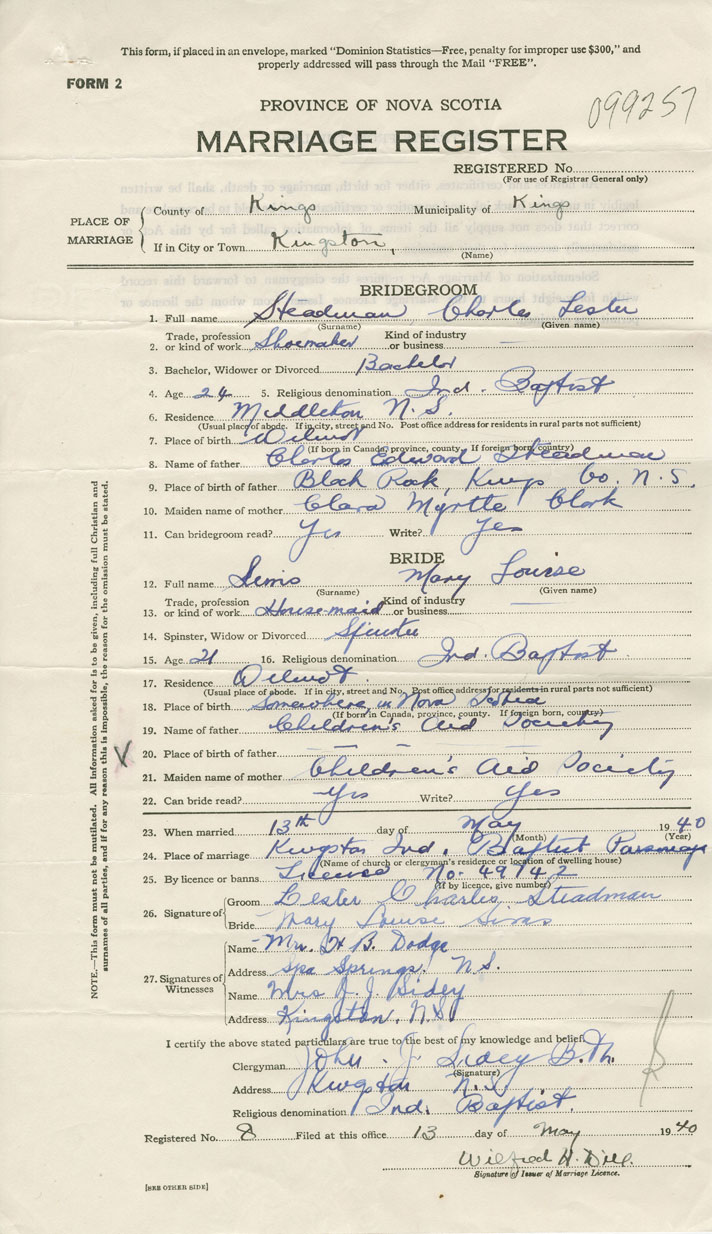 This form, if placed in an envelope, marked "Dominion Statistics—Free, penalty for improper use $300," and
properly addressed will pass through the Mail "FREE".
FORM 2
099257
PROVINCE OF NOVA SCOTIA
MARRIAGE REGISTER
REGISTERED No.
(For use of Registrar General only)
PLACE OF MARRIAGE
County of Kings Municipality of Kings
If in City or Town Kingston,
(Name)
BRIDEGROOM
1. Full name Steadman Charles Lester
(Surname) (Given name)
2. Trade, profession or kind of work Shoemaker Kind of industry or business —
3. Bachelor, Widower or Divorced Bachelor
4. Age 24 5. Religious denomination Ind. Baptist
6. Residence Middleton N. S.
(Usual place of abode. If in city, street and No. Post office address for residents in rural parts not sufficient)
7. Place of birth Wilmot
(If born in Canada, province, county. If foreign born, country)
8. Name of father Charles Edward Steadman
9. Place of birth of father Black Rock, Kings Co. N. S.
10. Maiden name of mother Clara Myrtle Clark
11. Can bridegroom read? Yes Write? Yes
BRIDE
12. Full name Sims Mary Louise
(Surname) (Given name)
13. Trade, profession or kind of work House-maid Kind of industry or business —
14. Spinster, Widow or Divorced Spinster
15. Age 21 16. Religious denomination Ind. Baptist
17. Residence Wilmot.
(Usual place of abode. If in city, street and No. Post office address for residents in rural parts not sufficient)
18. Place of birth Somewhere in Nova Scotia
(If born in Canada, province, county. If foreign born, country)
19. Name of father Children's Aid Society
20. Place of birth of father — —
21. Maiden name of mother Children's Aid Society
22. Can bride read? Yes Write? Yes
23. When married 13th day of May 1940
(Month) (Year)
24. Place of marriage Kingston Ind. Baptist Parsonage
(Name of church or clergyman's residence or location of dwelling house)
25. By licence or banns License No. 49142
(If by licence, give number)
26. Signature of
Groom Lester Charles Steadman
Bride Mary Louise Sims
27. Signatures of Witnesses
Name Mrs. H B. Dodge
Address Spa Springs, N.S.
Name Mrs J. J. Sidey
Address Kingston, N.S.
I certify the above stated particulars are true to the best of my knowledge and belief.
Clergyman John J. Sidey B.Th.
(Signature)
Address Kingston N.S.
Religious denomination Ind. Baptist.
Registered No. 8 Filed at this office 13 day of May 1940
Wilfred H. Dill.
Signature of Issuer of Marriage Licence.
[SEE OTHER SIDE]
NOTE.—This form must not be mutilated. All information asked for is to be given, including full Christian and
surnames of all parties, and if for any reason this is impossible, the reason for the omission must be stated.